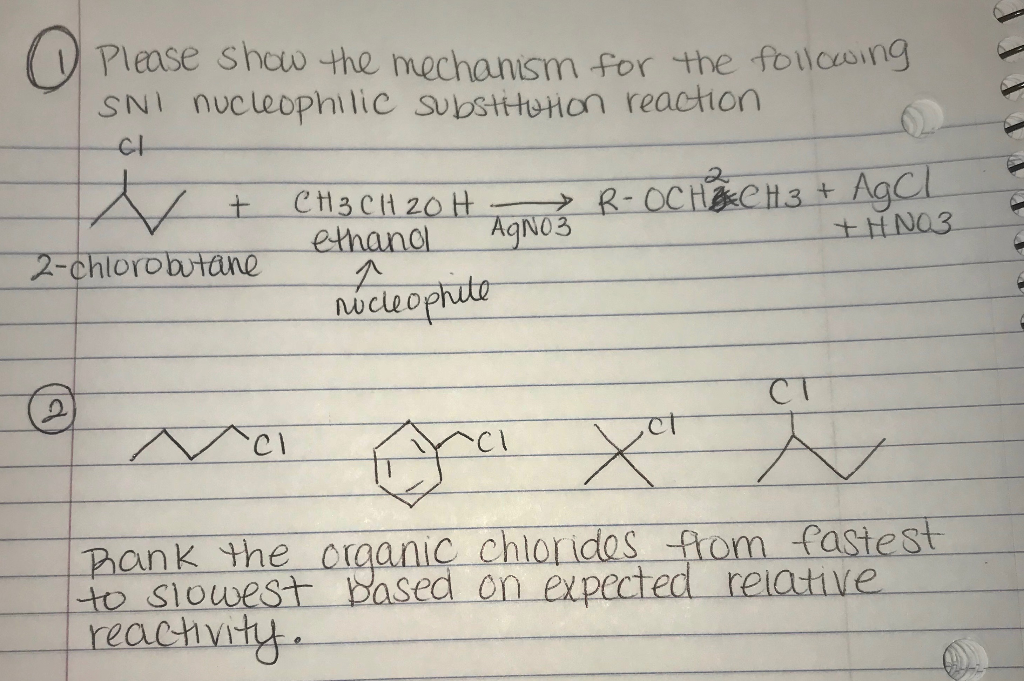 1 Please show the mechanism for the following
SN1 nucleophilic substitution reaction
Cl
+ CH3CH2OH → R-OCH2CH3 + AgCl
ethanol AgNO3 + HNO3
2-chlorobutane ↑
nucleophile
2 Cl Cl Cl Cl
Rank the organic chlorides from fastest
to slowest based on expected relative
reactivity.